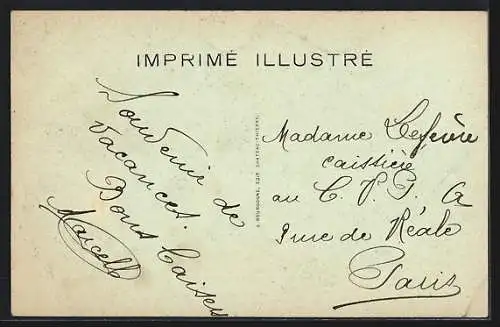 IMPRIMÉ ILLUSTRÉ
Souvenir de
vacances.
Bons baisers
Marcelle
Madame Lefèvre
caissière
au C. P. G. A
9 rue de Réale
Paris